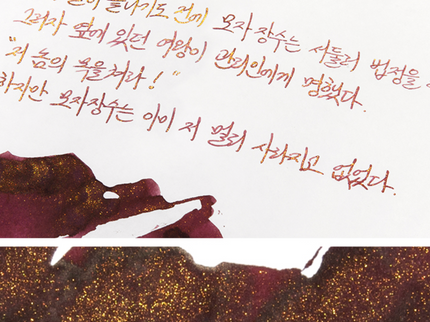 끝나기도 전에 모자 장수는 서둘러 법정을
그러자 옆에 있던 여왕이 관리인에게 명했다.
"저 놈의 목을쳐라!"
하지만 모자장수는 이미 저 멀리 사라지고 없었다.